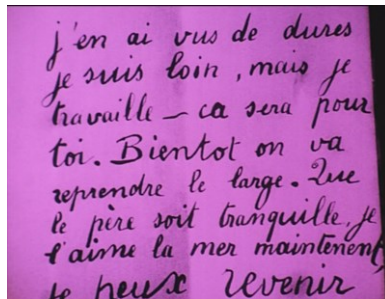 j'en ai vus de dures
je suis loin, mais je
travaille – ca sera pour
toi. Bientot on va
reprendre le large. Que
le père soit tranquille, je
l'aime la mer maintenent,
je peux revenir